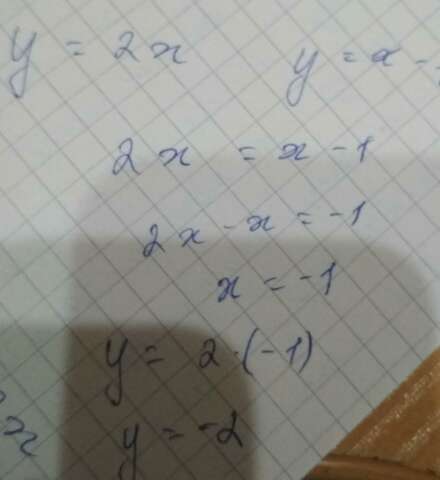 y = 2x y = x -
2x = x - 1
2x - x = -1
x = -1
y = 2·(-1)
y = -2
x